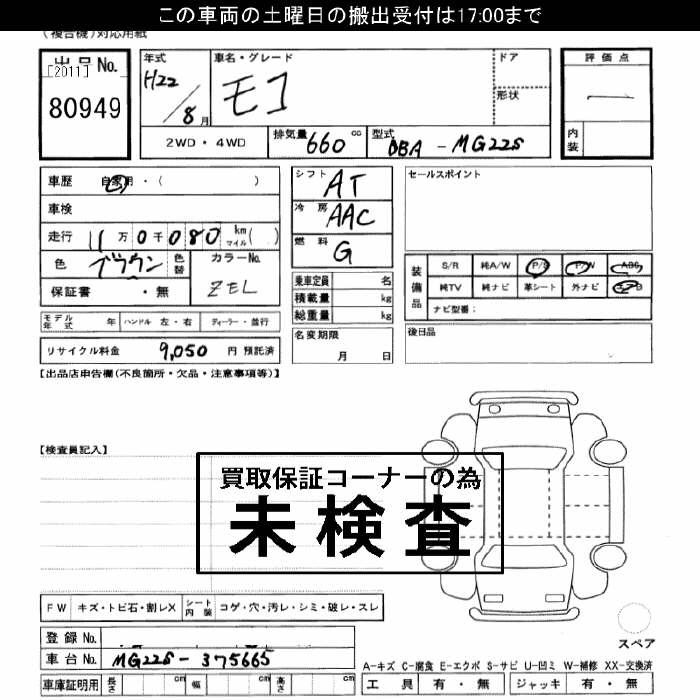 この車両の土曜日の搬出受付は17:00まで
(複合機)対応用紙
出品No.
[2011]
80949
年式
H22/8月
車名・グレード
モコ
ドア
形状
評価点
内装
2WD・4WD
排気量 660 cc
型式 DBA - MG22S
車歴 自家用・( )
車検
走行 11万0千080 km マイル ( )
色 ブラウン 色替
カラーNo. ZEL
保証書 ・無
シフト AT
冷房 AAC
燃料 G
乗車定員 名
積載量 kg
総重量 kg
名変期限
月 日
セールスポイント
装備品
S/R 純A/W P/S P/W ABS
純TV 純ナビ 革シート 外ナビ エアB
ナビ型番:
後日品
モデル年式 年 ハンドル 左・右 ディーラー・並行
リサイクル料金 9,050 円 預託済
【出品店申告欄(不良箇所・欠品・注意事項等)】
【検査員記入】
買取保証コーナーの為
未検査
FW キズ・トビ石・割レX シート内装 コゲ・穴・汚レ・シミ・破レ・スレ
登録No.
車台No. MG22S-375665
車庫証明用 長さ cm 幅 cm 高さ cm
スペア
A-キズ C-腐食 E-エクボ S-サビ U-凹ミ W-補修 XX-交換済
工具 有・無 ジャッキ 有・無